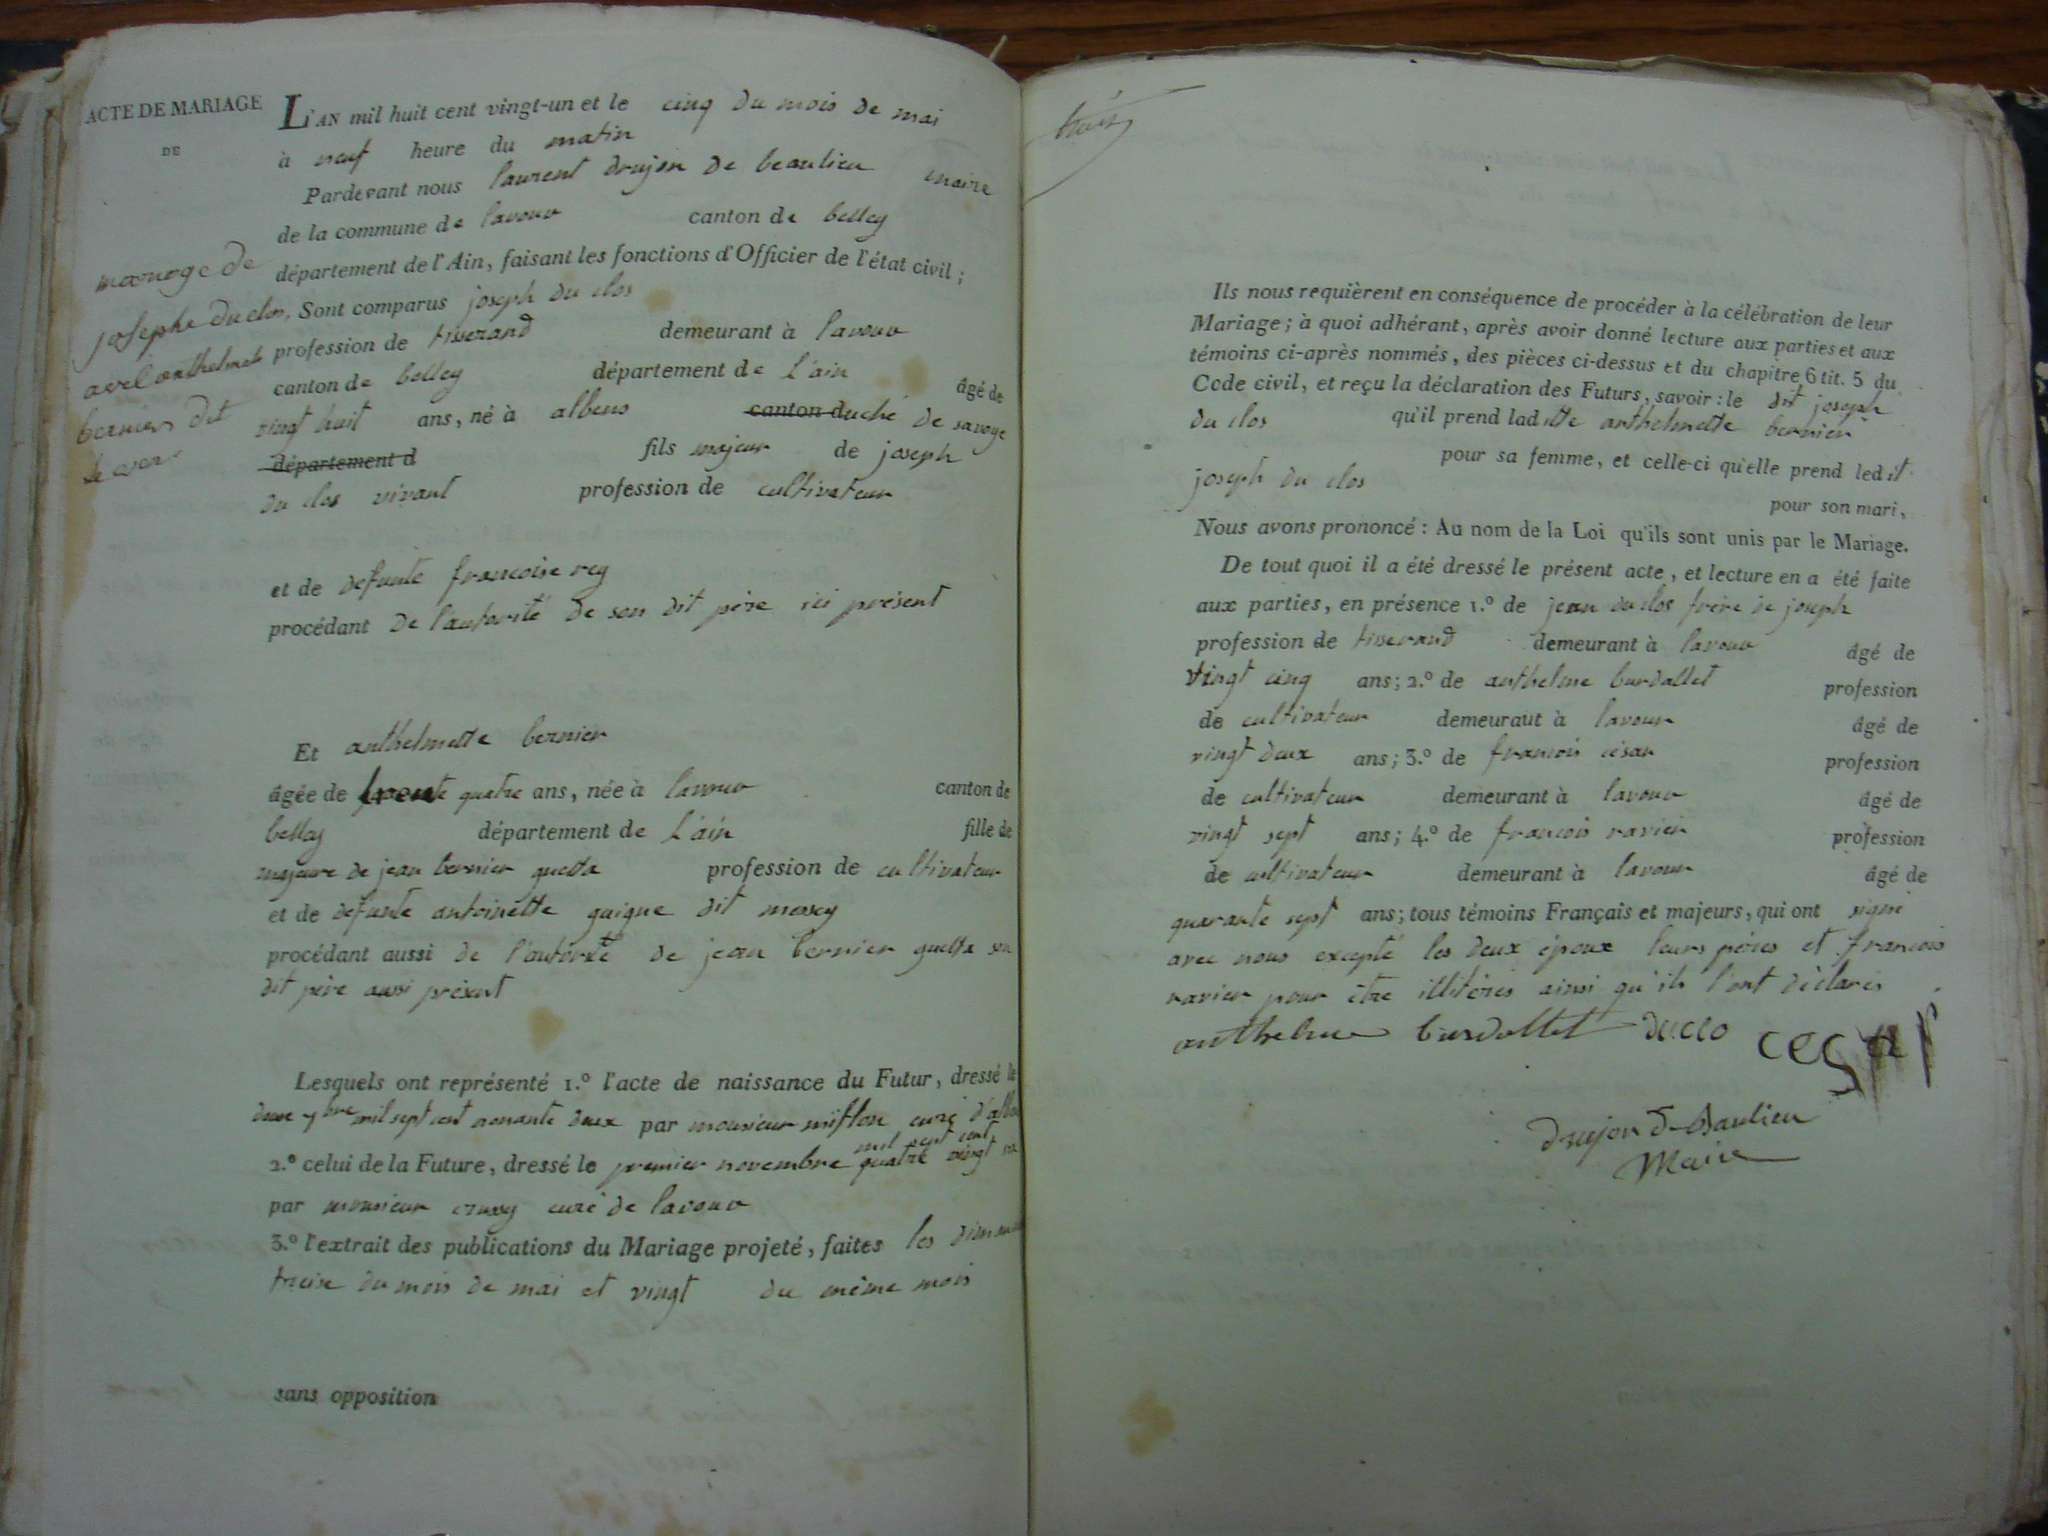 ACTE DE MARIAGE
DE
mariage de
josephe duclos
avec anthelmete
bernier dit
L'AN mil huit cent vingt-un et le cinq du mois de mai
à neuf heure du matin
Pardevant nous laurent drujon de beaulieu maire
de la commune de lavour canton de belley
département de l'Ain, faisant les fonctions d'Officier de l'état civil;
Sont comparus joseph du clos
profession de tisserand demeurant à lavour
canton de belley département de l'ain âgé de
vingt huit ans, né à albens canton duché de savoye
département d fils majeur de joseph
du clos vivant profession de cultivateur
et de defunte francoise rey
procédant de l'autorité de son dit père ici présent
Et anthelmette bernier
âgée de trente quatre ans, née à lavour canton de
belley département de l'ain fille de
majeure de jean bernier guetta profession de cultivateur
et de defunte antoinette guigue dit massey
procédant aussi de l'autorité de jean bernier guetta son
dit père aussi présent
Lesquels ont représenté 1.º l'acte de naissance du Futur, dressé le
deux 7bre mil sept cent nonante deux par monsieur curé
2.º celui de la Future, dressé le premier novembre mil sept cent quatre vingt
par monsieur curé de lavour
3.º l'extrait des publications du Mariage projeté, faites les
treise du mois de mai et vingt du même mois
sans opposition
Ils nous requièrent en conséquence de procéder à la célébration de leur
Mariage; à quoi adhérant, après avoir donné lecture aux parties et aux
témoins ci-après nommés, des pièces ci-dessus et du chapitre 6 tit. 5 du
Code civil, et reçu la déclaration des Futurs, savoir: le dit joseph
du clos qu'il prend ladite anthelmette bernier
pour sa femme, et celle-ci qu'elle prend ledit
joseph du clos pour son mari,
Nous avons prononcé: Au nom de la Loi qu'ils sont unis par le Mariage.
De tout quoi il a été dressé le présent acte, et lecture en a été faite
aux parties, en présence 1.º de jean du clos frère de joseph
profession de tisserand demeurant à lavour âgé de
vingt cinq ans; 2.º de anthelme burdallet profession
de cultivateur demeuraut à lavour âgé de
vingt deux ans; 3.º de francois césar profession
de cultivateur demeurant à lavour âgé de
vingt sept ans; 4.º de francois ravier profession
de cultivateur demeurant à lavour âgé de
quarante sept ans; tous témoins Français et majeurs, qui ont signé
avec nous excepté les deux époux leurs pères et francois
ravier pour être illitéres ainsi qu'ils l'ont déclarés
anthelme burdallet duclo cesar
drujon de Baulieu
Maire